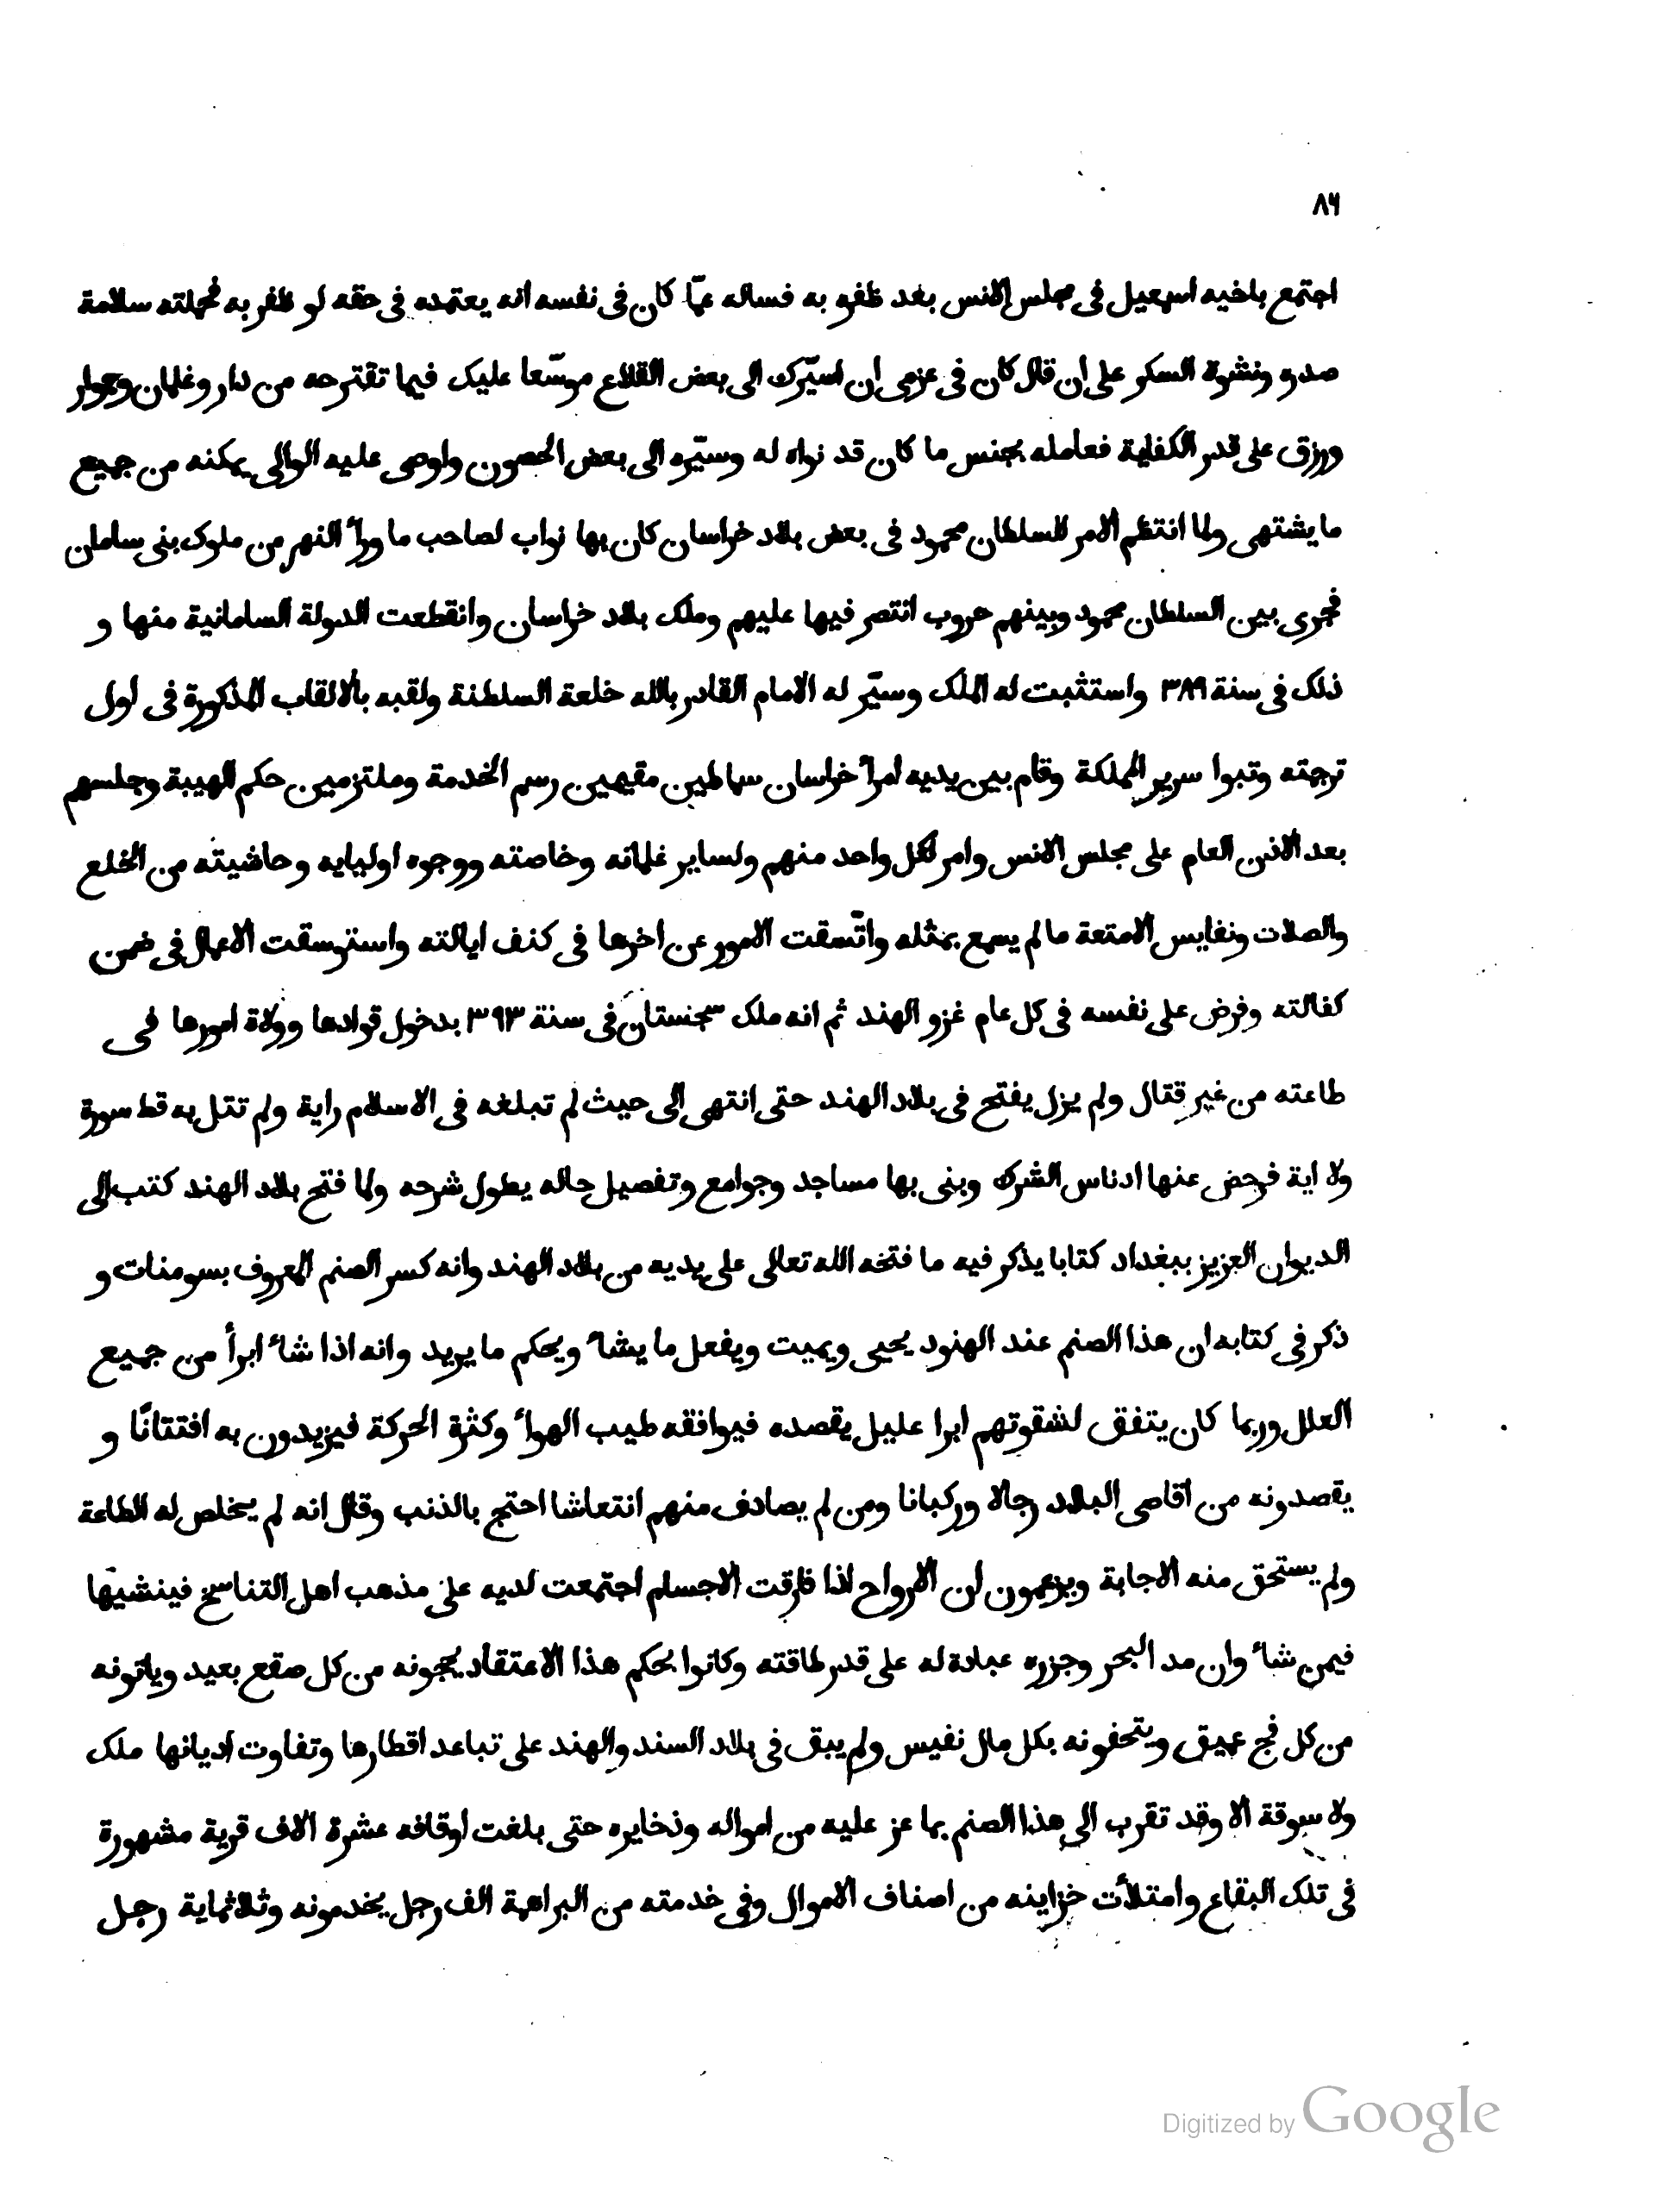 ٨٦
اجتمع باخيه اسمعيل فى مجلس الانس بعد ظفره به فساله عمّا كان فى نفسه انه يعتمده فى حقه لو ظفر به فحملته سلامة
صدره ونشوة السكر على ان قال كان فى عزمى ان اسيّرك الى بعض القلاع موسّعا عليك فيما تقترحه من دار وغلمان وجوار
ورزق على قدر الكفاية فعامله بجنس ما كان قد نواه له وسيّره الى بعض الحصون واوصى عليه الوالى يمكنه من جميع
ما يشتهى ولما انتظم الامر للسلطان محمود فى بعض بلاد خراسان كان بها نواب لصاحب ما ورآ النهر من ملوك بنى سامان
فجرى بين السلطان محمود وبينهم حروب انتصر فيها عليهم وملك بلاد خراسان وانقطعت الدولة السامانية منها و
ذلك فى سنة ٣٨٩ واستثبت له الملك وسيّر له الامام القادر بالله خلعة السلطنة ولقبه بالالقاب المذكورة فى اول
ترجمته وتبوا سرير المملكة وقام بين يديه امرآ خراسان سماطين مقيمين رسم الخدمة وملتزمين حكم الهيبة وجلسهم
بعد الاذن العام على مجلس الانس وامر لكل واحد منهم ولساير غلمانه وخاصته ووجوه اوليايه وحاشيته من الخلع
والصلات ونفايس الامتعة ما لم يسمع بمثله واتّسقت الامور عن اخرها فى كنف ايالته واستوسقت الاعمال فى ضمن
كفالته وفرض على نفسه فى كل عام غزو الهند ثم انه ملك سجستان فى سنة ٣٩٣ بدخول قوادها وولاة امورها فى
طاعته من غير قتال ولم يزل يفتح فى بلاد الهند حتى انتهى الى حيث لم تبلغه فى الاسلام راية ولم تتل به قط سورة
ولا اية فرحض عنها ادناس الشرك وبنى بها مساجد وجوامع وتفصيل حاله يطول شرحه ولما فتح بلاد الهند كتب الى
الديوان العزيز ببغداد كتابا يذكر فيه ما فتحه الله تعالى على يديه من بلاد الهند وانه كسر الصنم المعروف بسومنات و
ذكر فى كتابه ان هذا الصنم عند الهنود يحيى ويميت ويفعل ما يشآ ويحكم ما يريد وانه اذا شآ ابرأ من جميع
العلل وربما كان يتفق لشقوتهم ابرا عليل يقصده فيوافقه طيب الهوآ وكثرة الحركة فيزيدون به افتتانًا و
يقصدونه من اقاصى البلاد رجالا وركبانا ومن لم يصادف منهم انتعاشا احتج بالذنب وقال انه لم يخلص له الطاعة
ولم يستحق منه الاجابة ويزعمون ان الارواح اذا فارقت الاجسام اجتمعت لديه على مذهب اهل التناسخ فينشيها
فيمن شآ وان مد البحر وجزره عبادة له على قدر طاقته وكانوا بحكم هذا الاعتقاد يحجونه من كل صقع بعيد وياتونه
من كل فج عميق ويتحفونه بكل مال نفيس ولم يبق فى بلاد السند والهند على تباعد اقطارها وتفاوت اديانها ملك
ولا سوقة الا وقد تقرب الى هذا الصنم بما عز عليه من امواله وذخايره حتى بلغت اوقافه عشرة الاف قرية مشهورة
فى تلك البقاع وامتلأت خزاينه من اصناف الاموال وفى خدمته من البراهمة الف رجل يخدمونه وثلاثماية رجل
Digitized by Google